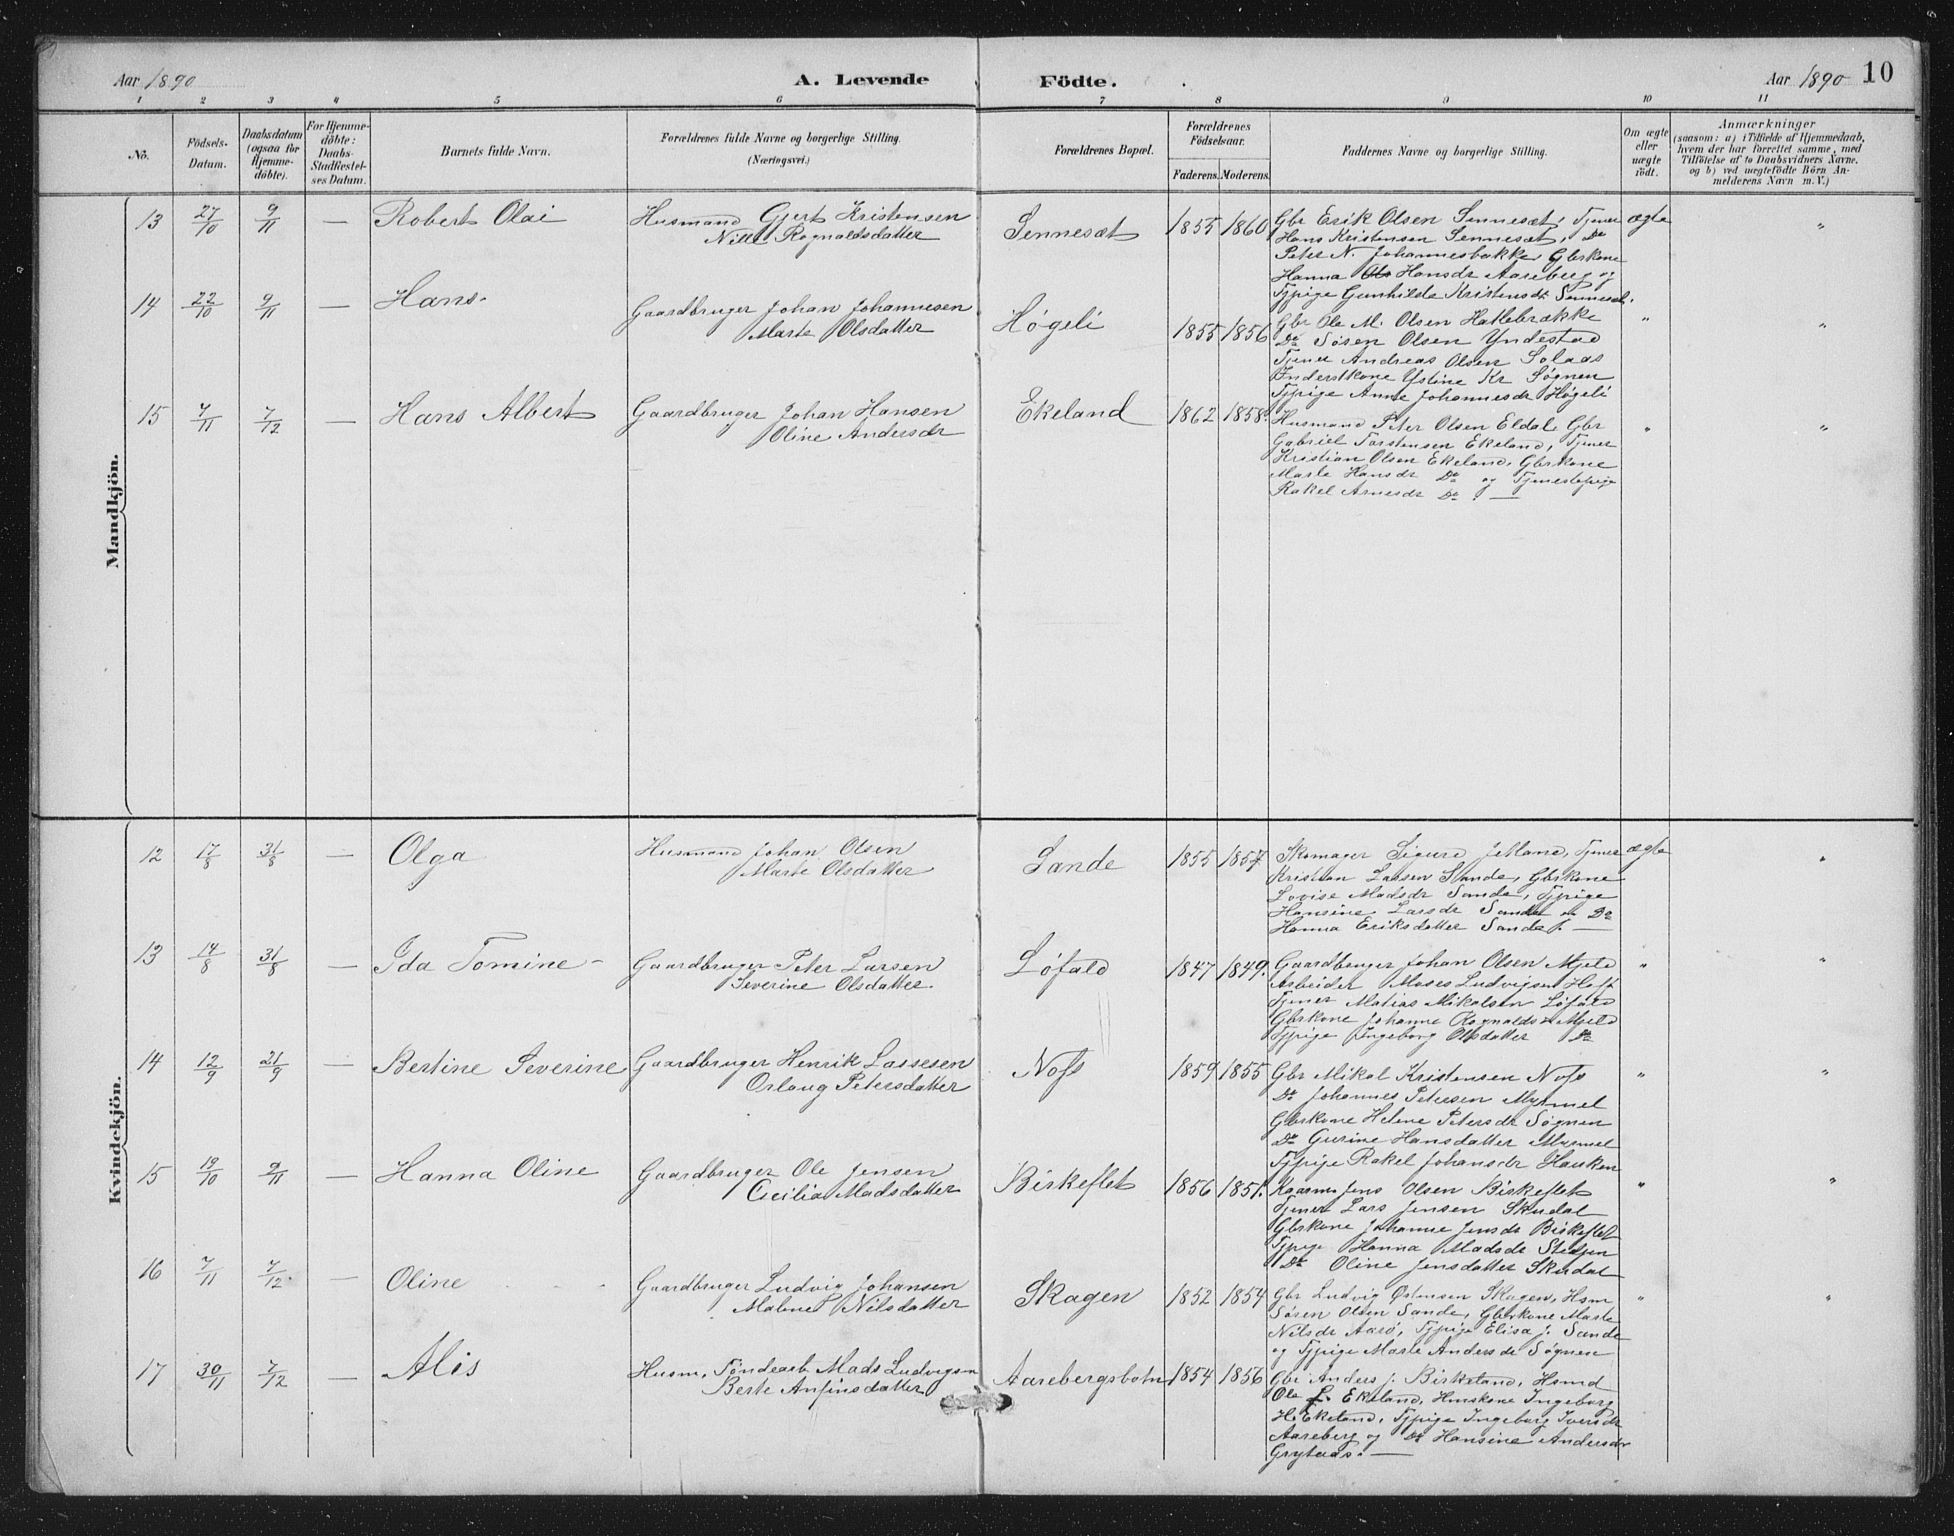 Aar 1890 A. Levende Födte. Aar 1890 10
1 2 3 4 5 6 7 8 9 10 11
No.
Födsels-Datum.
Daabsdatum (ogsaa for Hjemme-döbte).
For Hjemme-döbte: Daabs-Stadfæstel-ses Datum.
Barnets fulde Navn.
Forældrenes fulde Navne og borgerlige Stilling.
(Næringsvei.)
Forældrenes Bopæl.
Forældrenes Födselsaar.
Faderens. Moderens.
Faddernes Navne og borgerlige Stilling.
Om ægte eller uægte födt.
Anmærkninger
(saasom: a) i Tilfælde af Hjemmedaab,
hvem der har forrettet samme, med
Tilföielse af to Daabsvidners Navne.
og b) ved uægtefödte Börn An-
melderens Navn m. V.)
Mandkjön.
13 27/10 9/11 — Robert Olai Husmand Gjert Kristensen
Rognaldsdatter
Sennesæt 1855 1860 Gbr Erik Olsen Sennesæt, Tjener ægte "
Hans Kristensen Sennesæt, Do
Peter N. Johannesbakke, Gbrkone
Hanna Hansdr Aareberg og
Tjpige Gunhilde Kristensdr Sennesæt.
14 22/10 9/11 — Hans Gaardbruger Johan Johannesen
Marte Olsdatter
Høgeli 1855 1856 Gbr Ole M. Olsen Hatlebrække " "
Do Søren Olsen Yndestad
Tjener Andreas Olsen Solaas
Inderstkone Kr Søgnen
Tjpige Anne Johannesdr Høgeli
15 7/11 7/12 — Hans Albert Gaardbruger Johan Hansen
Oline Andersdr
Ekeland 1862 1858. Husmand Peter Olsen Eldal, Gbr " "
Gabriel Torstensen Ekeland, Tjener
Kristian Olsen Ekeland, Gbrkone
Marte Hansdr Do og Tjenestepige
Rakel Arnesdr Do. —
Kvindekjön.
12 17/8 31/8 — Olga Husmand Johan Olsen
Marte Olsdatter
Sande 1855 1857 Skomager Sigurd Jetland, Tjener ægte "
Kristian Larsen Sande, Gbrkone
Lovise Madsdr Sande, Tjpige
Hansine Larsdr Sande Do
Hanna Eriksdatter Sande. —
13 14/8 31/8 — Ida Tomine Gaardbruger Peter Larsen
Severine Olsdatter.
Løfald 1847 1849. Gaardbruger Johan Olsen Mjeld " "
Arbeider Moses Ludvigsen
Tjener Matias Mikalsen Løfald
Gbrkone Johanne Rognaldsdr Mjeld
Tjpige Ingeborg Olsdatter Do
14 12/9 21/9 — Bertine Severine Gaardbruger Henrik Lassesen
Orlaug Petersdatter
Nofs 1859 1855 Gbr Mikal Kristensen Nofs " "
Do Johannes Petersen Myrmel
Gbrkone Helene Petersdr Søgnen
Do Gurine Hansdatter Myrmel
Tjpige Rakel Johansdr Hauken
15 19/10 9/11 — Hanna Oline Gaardbruger Ole Jensen
Cicilia Madsdatter
Birkeflet 1856 1851. Kaarm. Jens Olsen Birkeflet " "
Tjener Lars Jensen Skudal
Gbrkone Johanne Jensdr Birkeflet
Tjpige Hanna Madsdr
Do Oline Jensdatter Skudal
16 7/11 7/12 — Oline Gaardbruger Ludvig Johansen
Malene Nilsdatter
Skagen 1852 1854 Gbr Ludvig Østensen Skagen, Hsm " "
Søren Olsen Sande, Gbrkone Marte
Nilsdr Aarø, Tjpige Elisa J. Sande
og Tjpige Marte Andersdr Søgnen
17 30/11 7/12 — Alis Husm. Töndearb. Mads Ludvigsen
Berte Anfinsdatter
Aarebergsbotn 1854 1856 Gbr Anders J. Birkeland, Hsmd
Ole Ekeland, Hmskone Ingeborg
H. Ekeland, Tjpige Ingeborg Iversdr
Aareberg og Do Hansine Andersdr
Grytaas. —